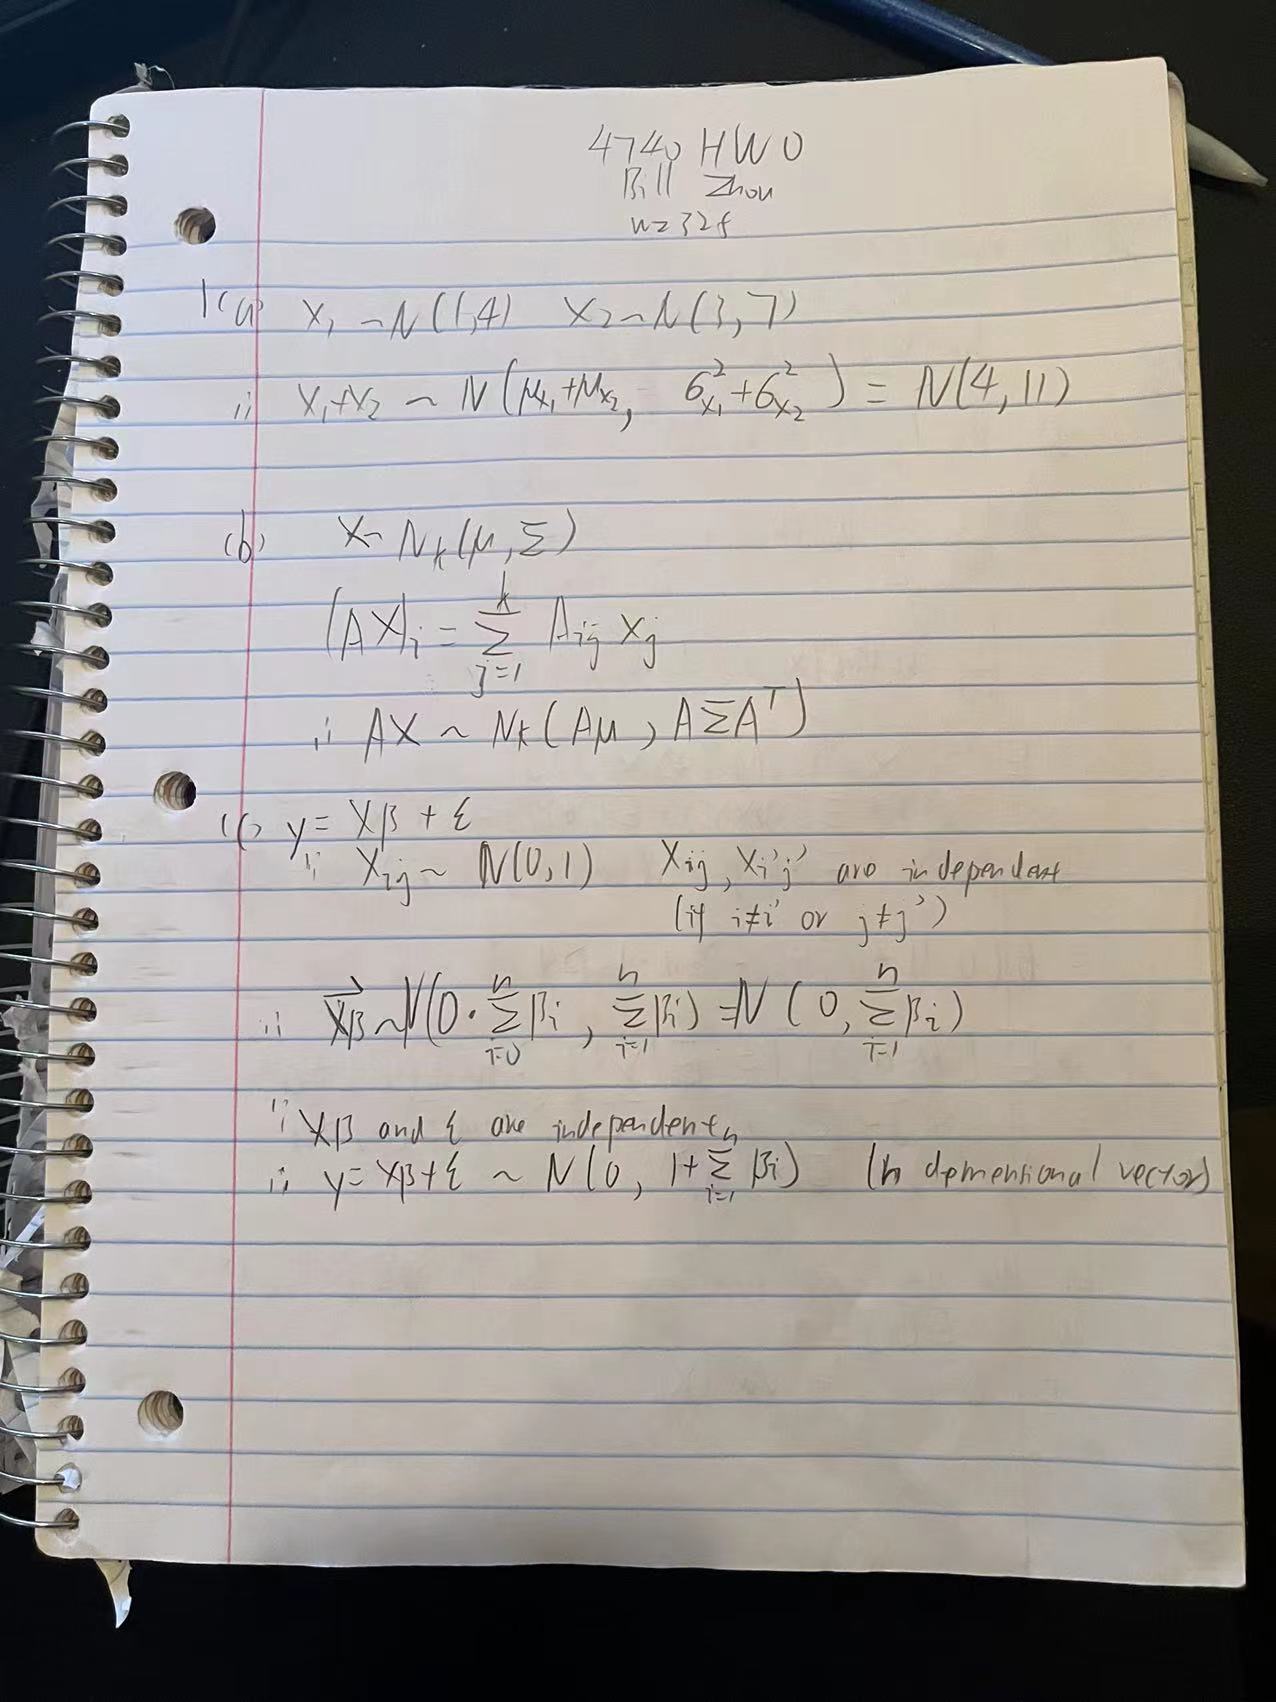 4740 HW0
Bill Zhou
wz325
1(a) X₁ ~ N(1,4)   X₂ ~ N(3,7)
∴ X₁+X₂ ~ N(μ_{X₁}+μ_{X₂}, σ²_{X₁}+σ²_{X₂}) = N(4,11)
(b) X ~ N_k(μ, Σ)
(AX)_i = Σ_{j=1}^{k} A_{ij} X_j
∴ AX ~ N_k(Aμ, AΣAᵀ)
(c) y = Xβ + ε
∵ X_{ij} ~ N(0,1)   X_{ij}, X_{i'j'} are independent
(if i≠i' or j≠j')
∴ Xβ⃗ ~ N(0·Σ_{i=0}^{n} β_i, Σ_{i=1}^{n} β_i) = N(0, Σ_{i=1}^{n} β_i)
∵ Xβ and ε are independent
∴ y = Xβ+ε ~ N(0, 1+Σ_{i=1}^{n} β_i)   (n demensional vector)